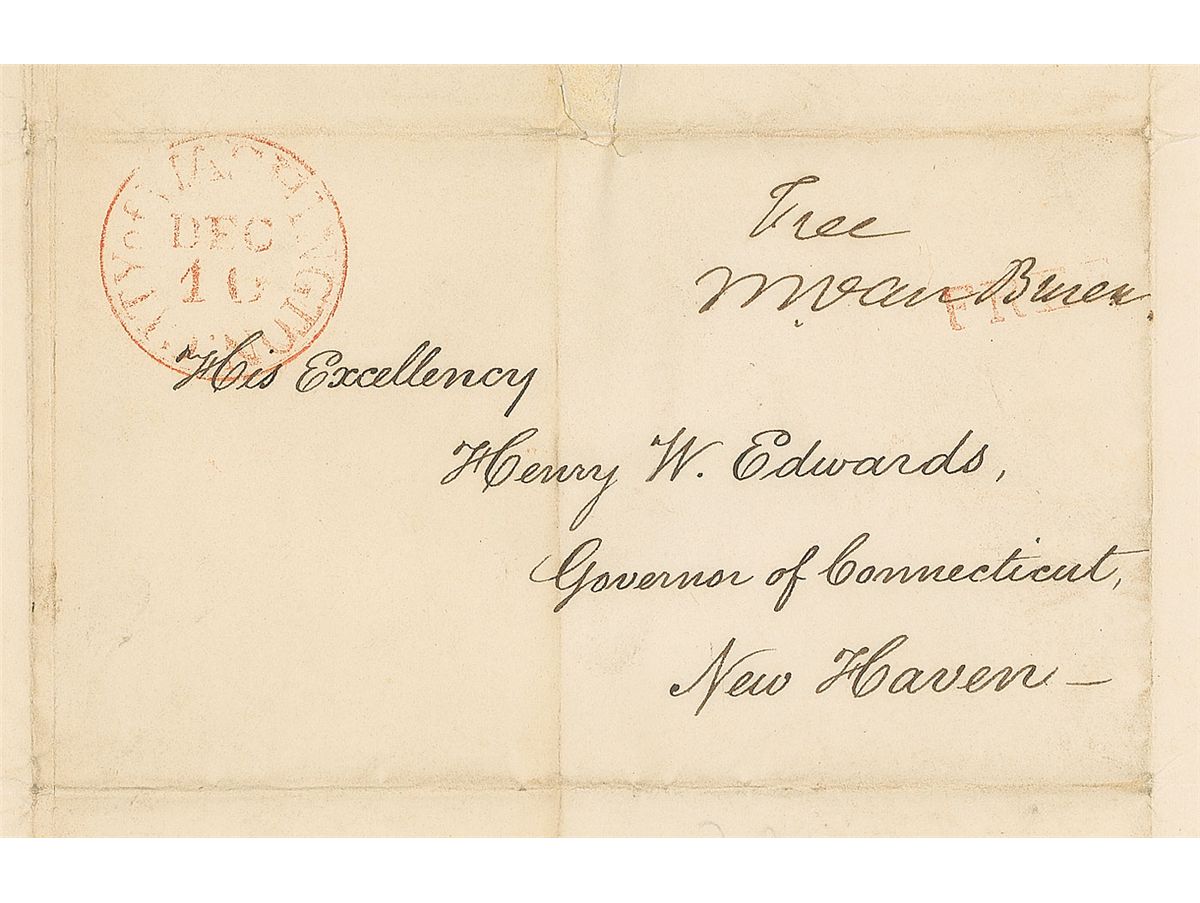 CITY OF WASHINGTON
DEC
10
Free
M. Van Buren
FREE
His Excellency
Henry W. Edwards,
Governor of Connecticut,
New Haven –